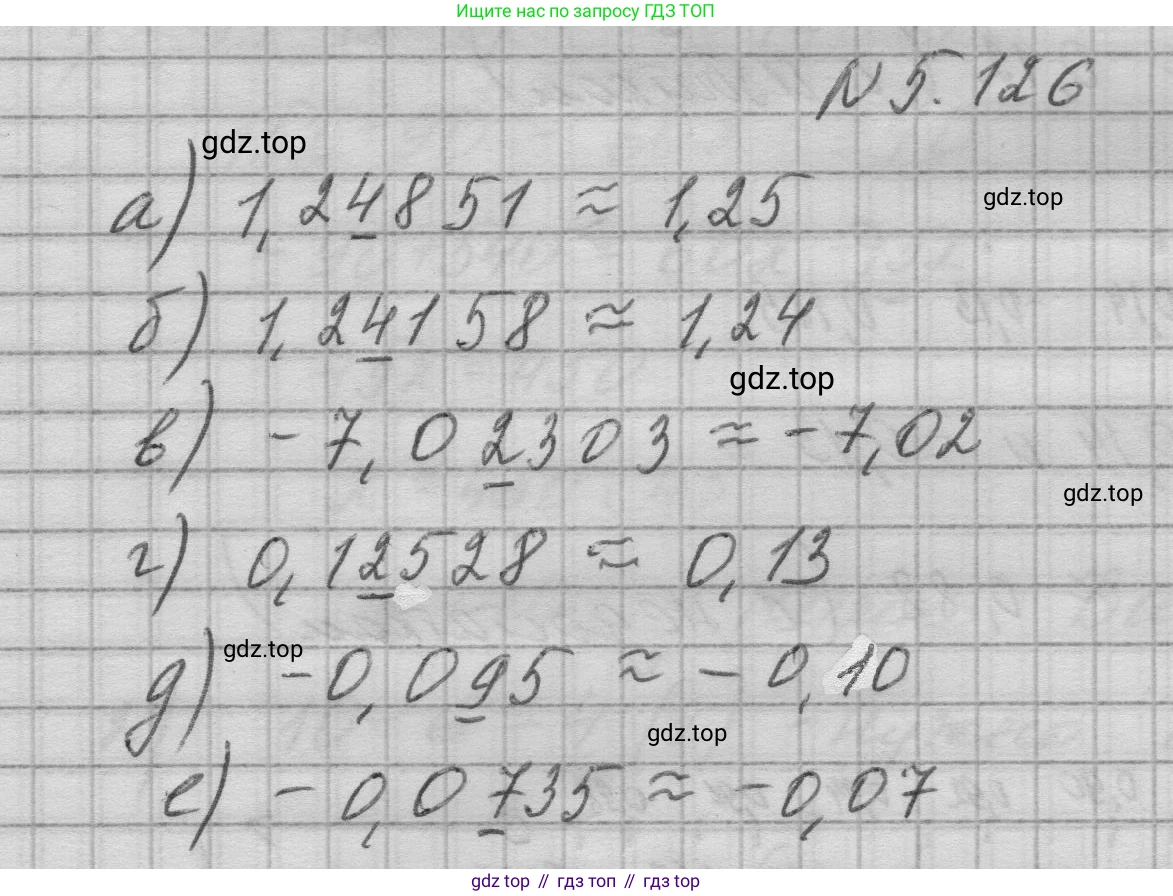 Ищите нас по запросу ГДЗ ТОП
N 5.126
gdz.top
а) 1,24851 ≈ 1,25
gdz.top
б) 1,24158 ≈ 1,24
gdz.top
в) -7,02303 ≈ -7,02
gdz.top
г) 0,12528 ≈ 0,13
gdz.top
д) -0,095 ≈ -0,10
gdz.top
е) -0,0735 ≈ -0,07
gdz top // гдз топ // гдз top